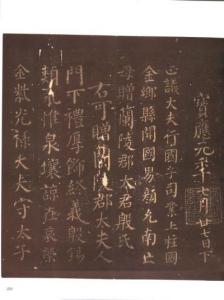 寶應元年七月廿七日下
正議大夫行國子司業上柱國
金鄉縣開國男顏允南亡
母贈蘭陵郡太君殷氏
右可贈蘭陵郡太夫人
門下禮厚飾終義殷錫
類永惟泉壤諒在哀榮
金紫光祿大夫守太子